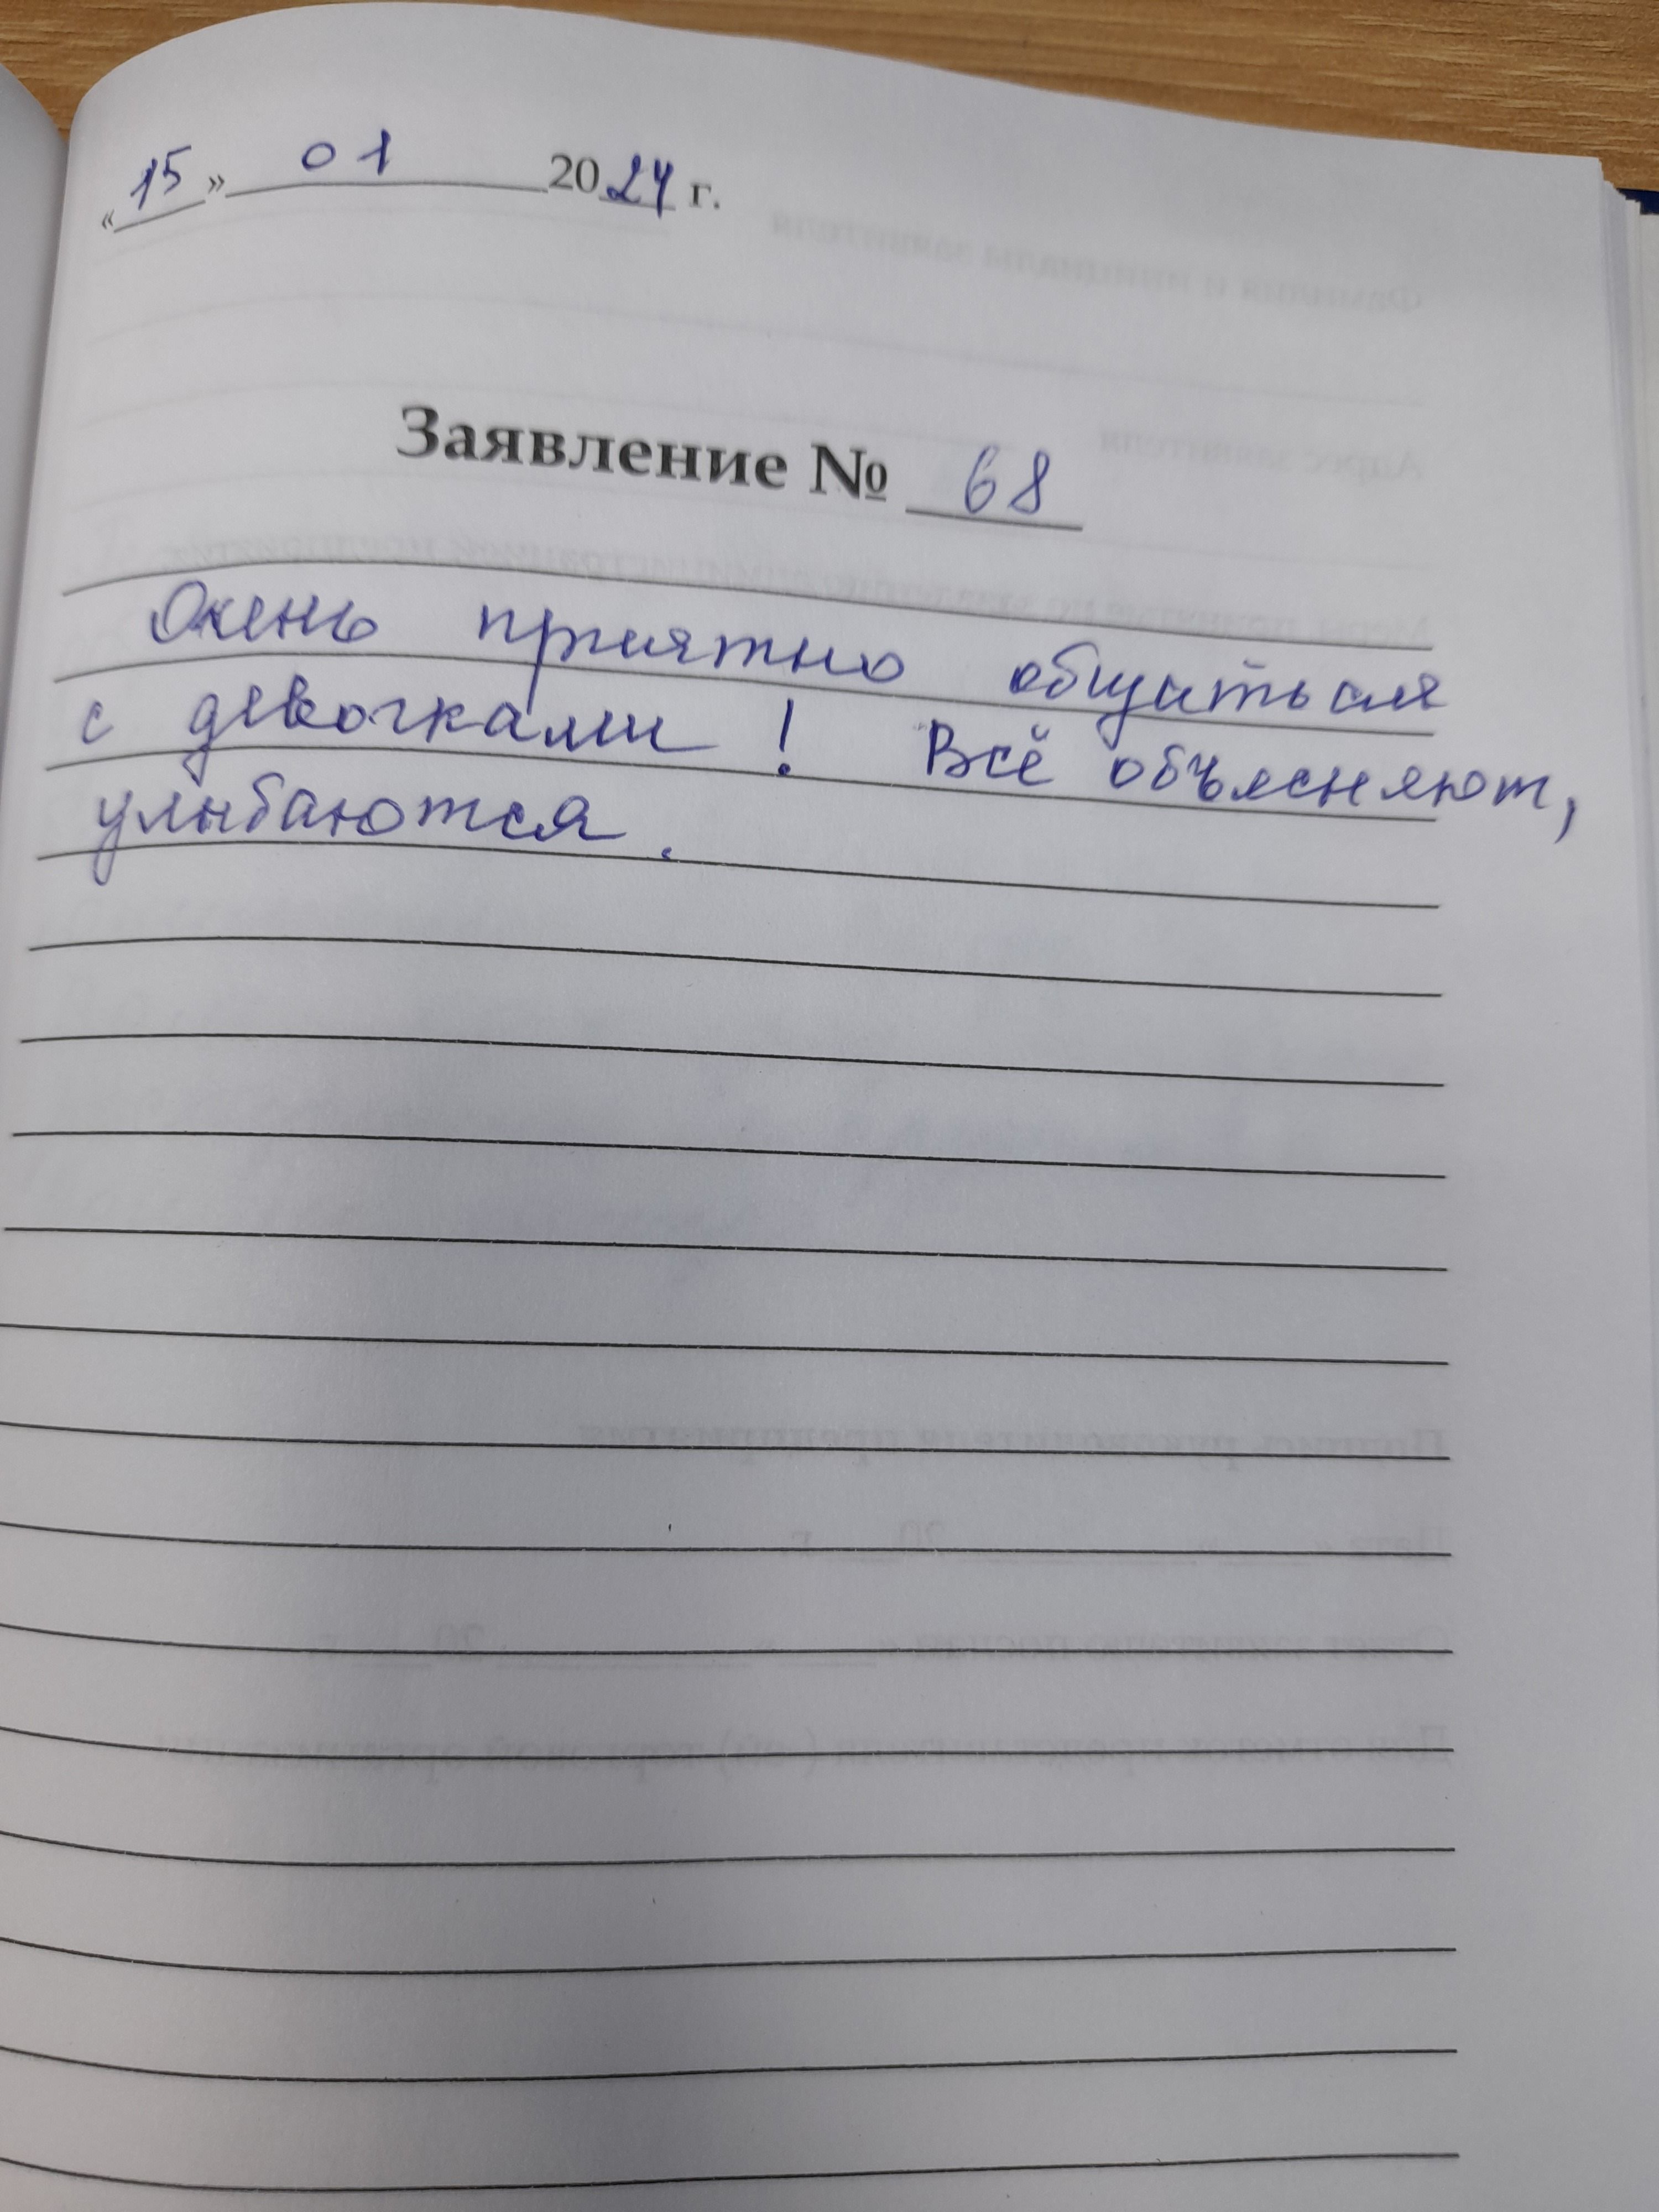 «15» 01 2024 г.
Заявление № 68
Очень приятно общаться
с девочками! Всё объясняют,
улыбаются.